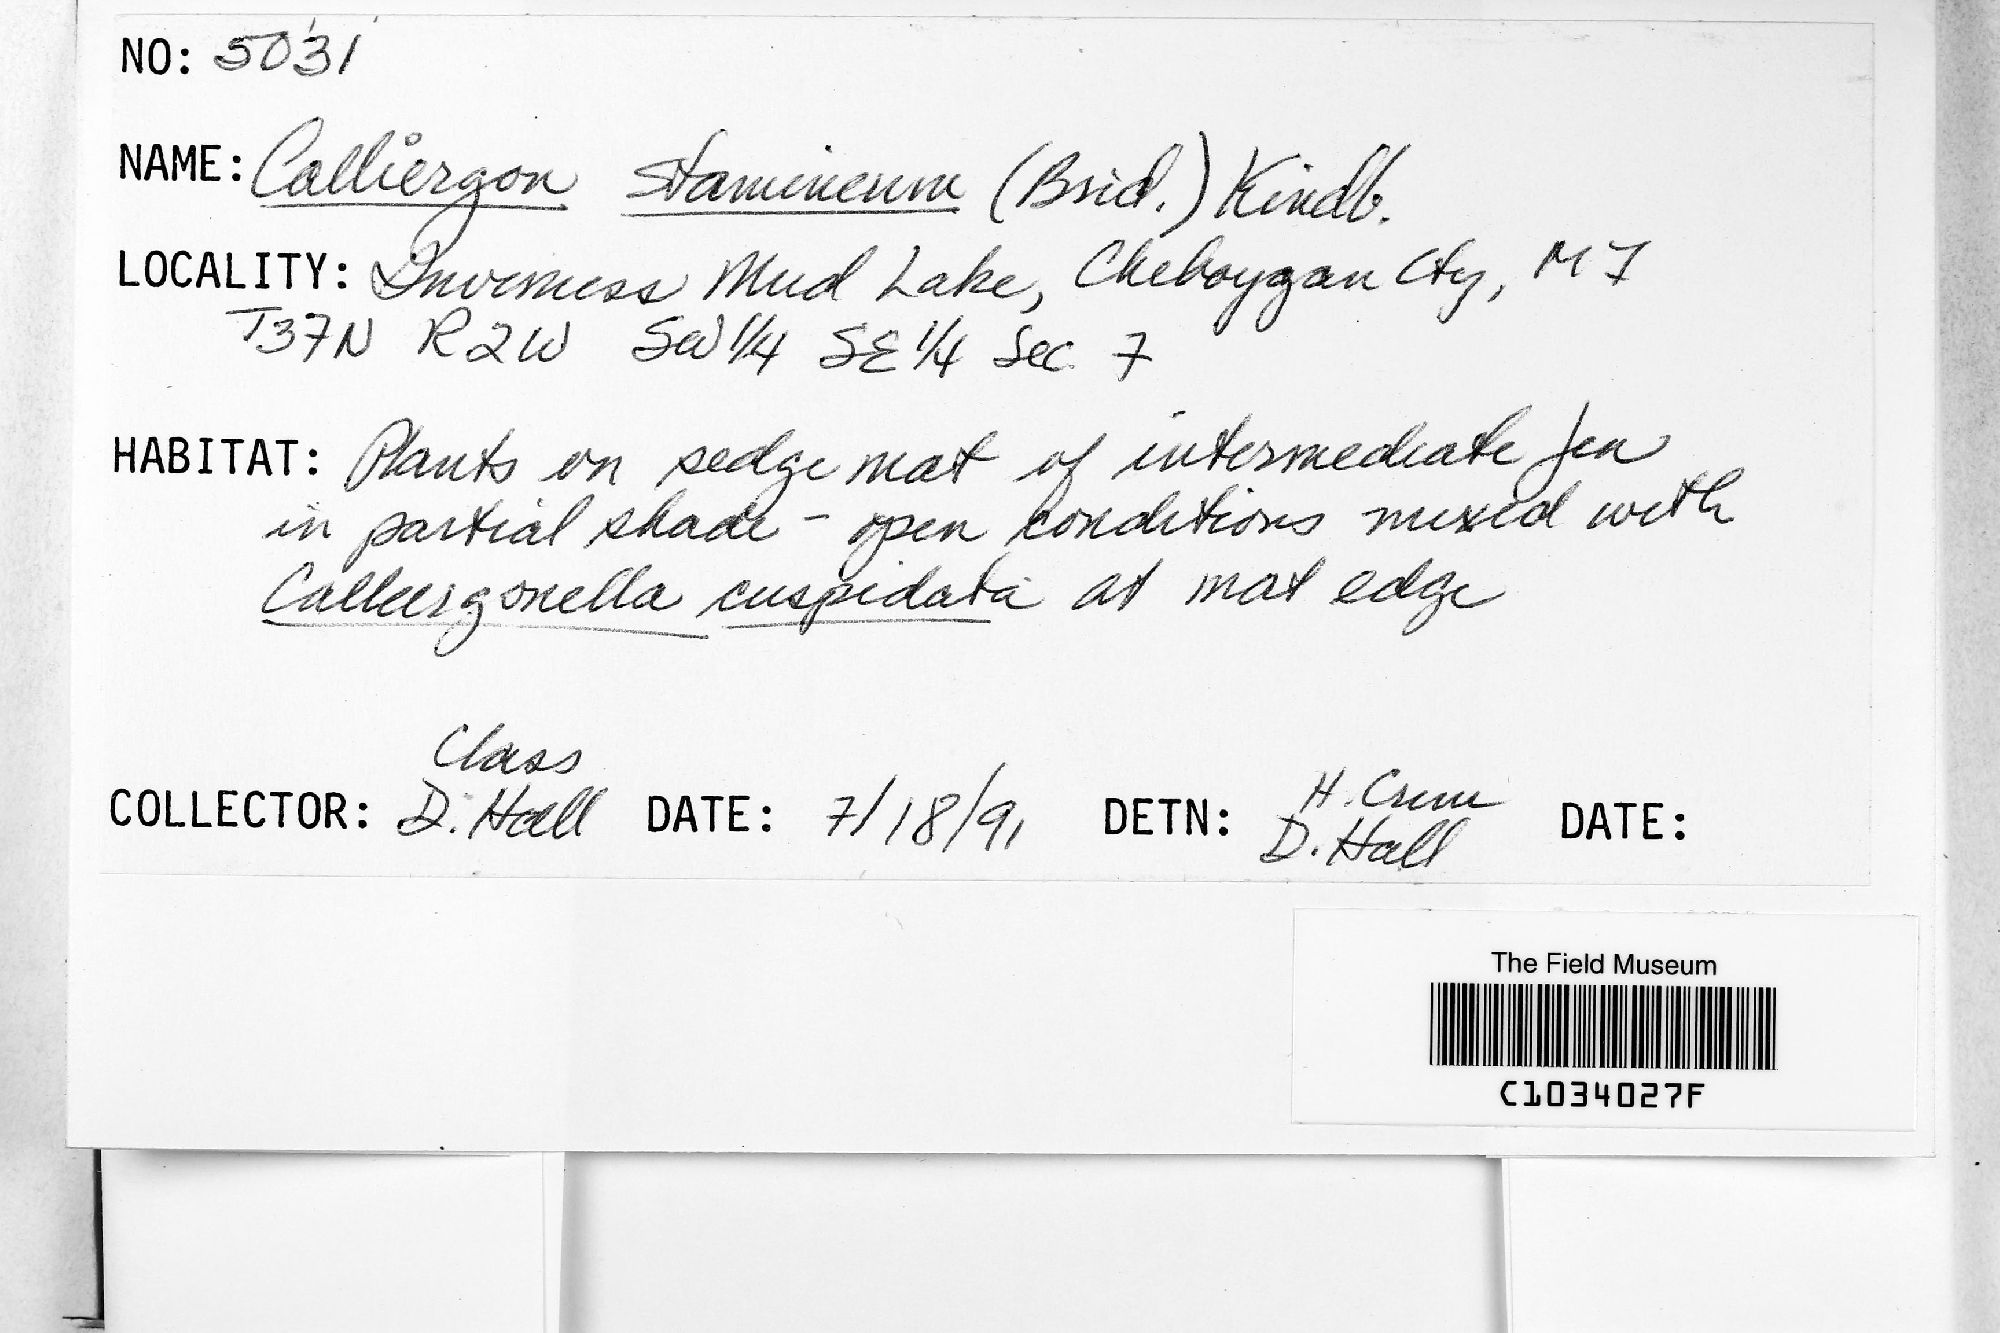 NO: 5031
NAME: Calliergon stramineum (Brid.) Kindb.
LOCALITY: Inverness Mud Lake, Cheboygan Cty, MI
T37N R2W SW 1/4 SE 1/4 Sec 7
HABITAT: Plants on sedge mat of intermediate fen
in partial shade - open conditions mixed with
Calliergonella cuspidata at mat edge
Class
COLLECTOR: D. Hall DATE: 7/18/91 DETN: H. Crum DATE:
D. Hall
The Field Museum
C1034027F